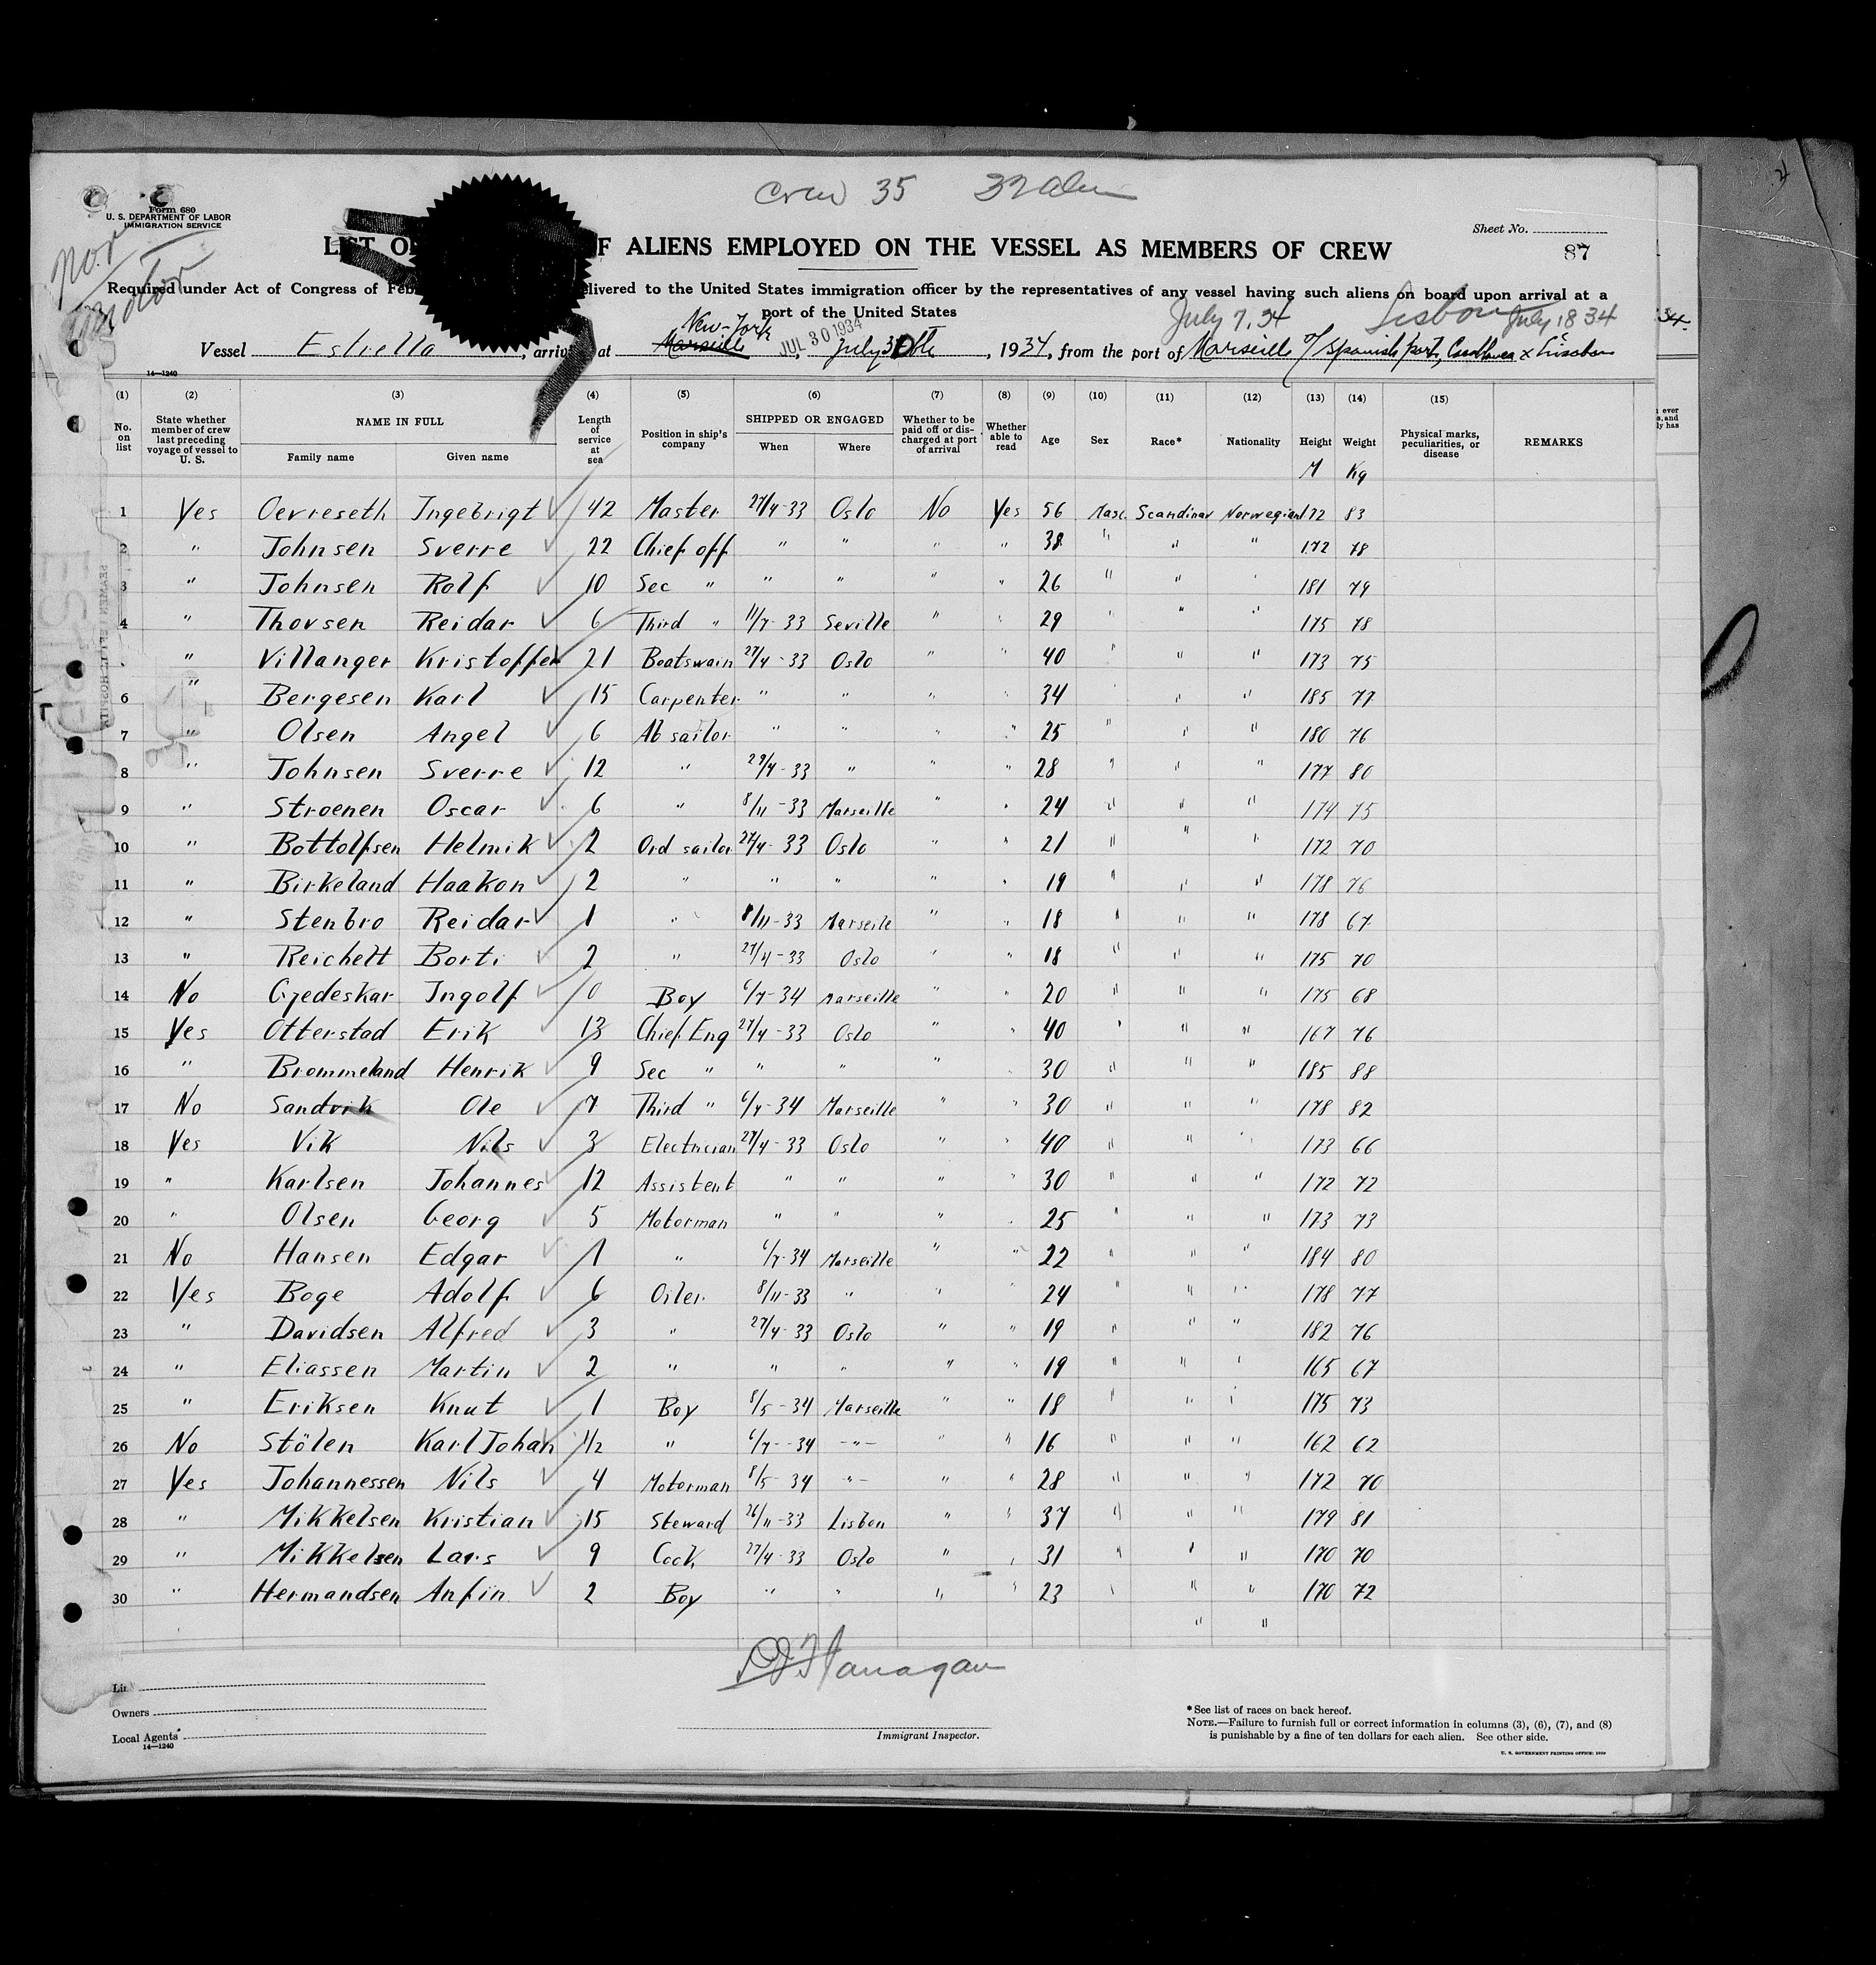 Crew 35 32 alien
Form 680
U. S. DEPARTMENT OF LABOR
IMMIGRATION SERVICE
Nor
Motor
Sheet No.
87
LIST O F ALIENS EMPLOYED ON THE VESSEL AS MEMBERS OF CREW
Required under Act of Congress of Feb elivered to the United States immigration officer by the representatives of any vessel having such aliens on board upon arrival at a
port of the United States
July 7, 34 Lisbon July 18 34
New-York
Vessel Estrella, arrivi at Marseille JUL 30 1934 July 30th, 1934, from the port of Marseille Spanish port, Casablanca & Lisabon
14—1240
(1) (2) (3) (4) (5) (6) (7) (8) (9) (10) (11) (12) (13) (14) (15)
No. on list State whether member of crew last preceding voyage of vessel to U. S. NAME IN FULL Family name Given name Length of service at sea Position in ship's company SHIPPED OR ENGAGED When Where Whether to be paid off or discharged at port of arrival Whether able to read Age Sex Race* Nationality Height Weight Physical marks, peculiarities, or disease REMARKS
M Kg
1 Yes Oevreseth Ingebrigt 42 Master 27/4-33 Oslo No Yes 56 Masc. Scandinav Norwegian 172 83
2 " Johnsen Sverre 22 Chief off " " " " 38 " " " 172 78
3 " Johnsen Rolf 10 Sec " " " " " 26 " " " 181 79
4 " Thorsen Reidar 6 Third " 11/7-33 Seville " " 29 " " " 175 78
" Villanger Kristoffer 21 Boatswain 27/4-33 Oslo " " 40 " " " 173 75
6 " Bergesen Karl 15 Carpenter " " " " 34 " " " 185 77
7 " Olsen Angel 6 Ab sailor " " " " 25 " " " 180 76
8 " Johnsen Sverre 12 " 29/4-33 " " " 28 " " " 177 80
9 " Stroenen Oscar 6 " 8/11-33 Marseille " " 24 " " " 174 75
10 " Bottolfsen Helmik 2 Ord sailor 27/4-33 Oslo " " 21 " " " 172 70
11 " Birkeland Haakon 2 " " " " " 19 " " " 178 76
12 " Stenbro Reidar 1 " 8/11-33 Marseile " " 18 " " " 178 67
13 " Reichelt Borti 2 " 27/4-33 Oslo " " 18 " " " 175 70
14 No Gjedeskar Ingolf 0 Boy 6/7-34 Marseille " " 20 " " " 175 68
15 Yes Otterstad Erik 13 Chief Eng 27/4-33 Oslo " " 40 " " " 167 76
16 " Brommeland Henrik 9 Sec " " " " " 30 " " " 185 88
17 No Sandvik Ole 7 Third " 6/7-34 Marseille " " 30 " " " 178 82
18 Yes Vik Nils 3 Electrician 27/4-33 Oslo " " 40 " " " 173 66
19 " Karlsen Johannes 12 Assistent " " " " 30 " " " 172 72
20 " Olsen Georg 5 Motorman " " " " 25 " " " 173 73
21 No Hansen Edgar 1 " 6/7-34 Marseille " " 22 " " " 184 80
22 Yes Boge Adolf 6 Oiler 8/11-33 " " " 24 " " " 178 77
23 " Davidsen Alfred 3 " 27/4-33 Oslo " " 19 " " " 182 76
24 " Eliassen Martin 2 " " " " " 19 " " " 165 67
25 " Eriksen Knut 1 Boy 8/5-34 Marseille " " 18 " " " 175 73
26 No Stölen Karl Johan 1/2 " 6/7-34 -"- " " 16 " " " 162 62
27 Yes Johannessen Nils 4 Motorman 8/5-34 -"- " " 28 " " " 172 70
28 " Mikkelsen Kristian 15 Steward 26/11-33 Lisbon " " 37 " " " 179 81
29 " Mikkelsen Lars 9 Cook 27/4-33 Oslo " " 31 " " " 170 70
30 " Hermandsen Anfin 2 Boy " " " " 23 " " " 170 72
" "
Flanagan
Immigrant Inspector.
Lin
Owners
Local Agents
14—1240
*See list of races on back hereof.
NOTE.—Failure to furnish full or correct information in columns (3), (6), (7), and (8)
is punishable by a fine of ten dollars for each alien. See other side.
U. S. GOVERNMENT PRINTING OFFICE: 1930